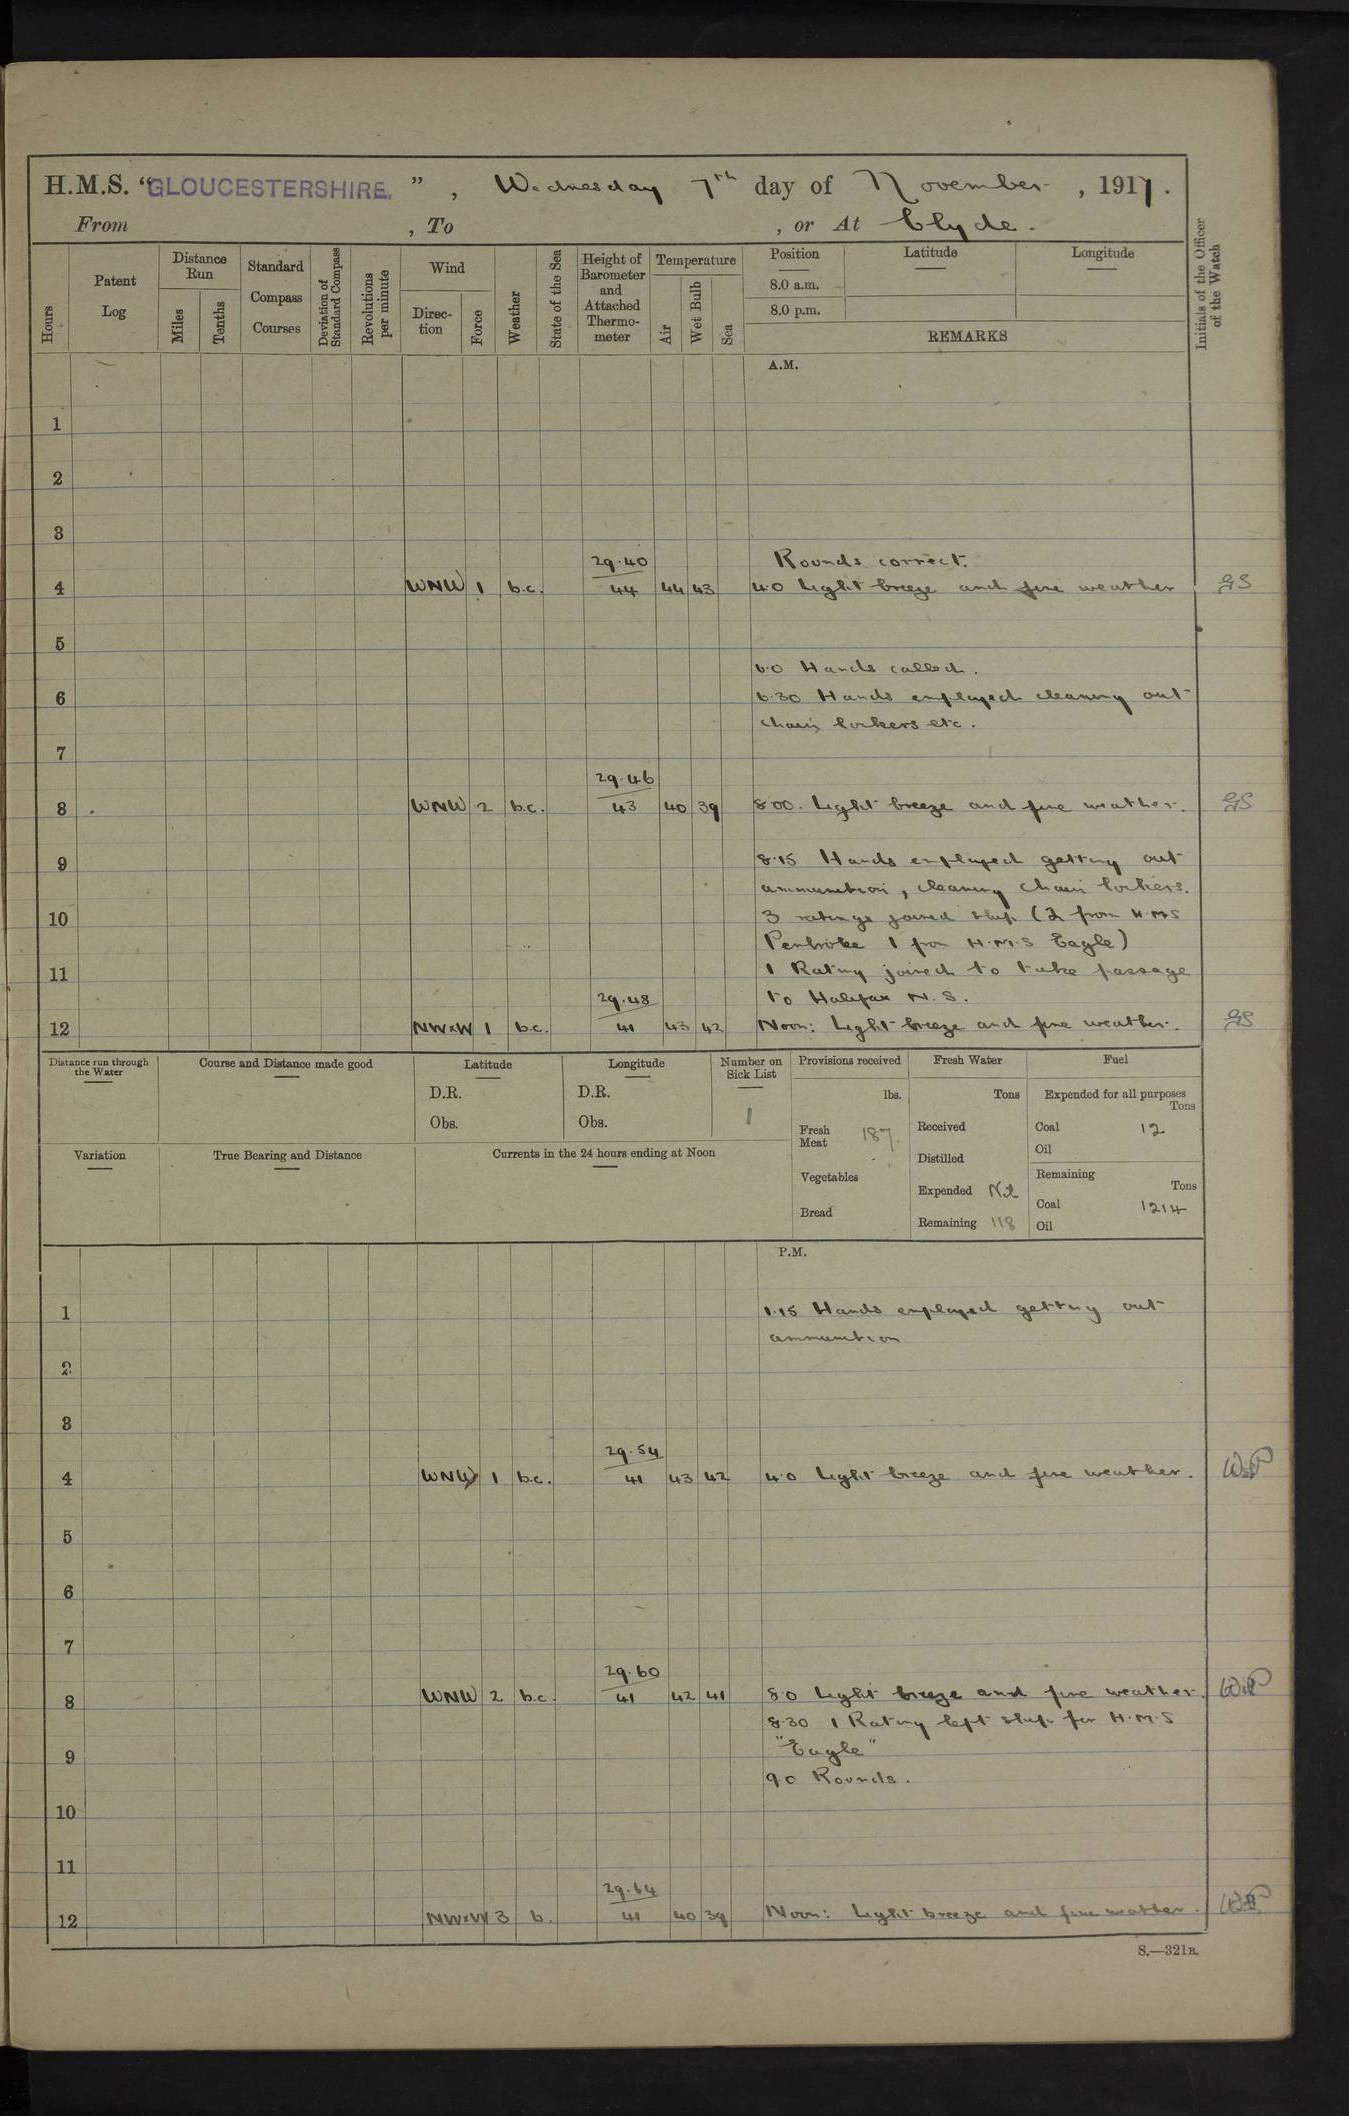 H.M.S. "GLOUCESTERSHIRE.", Wednesday 7th day of November, 1917.
From , To , or At Clyde.
Hours
Patent Log
Distance Run
Miles
Tenths
Standard Compass Courses
Deviation of Standard Compass
Revolutions per minute
Wind
Direction
Force
Weather
State of the Sea
Height of Barometer and Attached Thermometer
Temperature
Air
Wet Bulb
Sea
Position
8.0 a.m.
8.0 p.m.
Latitude
Longitude
REMARKS
Initials of the Officer of the Watch
A.M.
1
2
3
29.40 Rounds correct.
4 WNW 1 b.c. 44 44 43 4.0 Light breeze and fine weather GS
5
6.0 Hands called.
6 6.30 Hands employed cleaning out
chain lockers etc.
7
29.46
8 WNW 2 b.c. 43 40 39 8.00. Light breeze and fine weather. GS
9 8.15 Hands employed getting out
ammunition, cleaning chain lockers.
10 3 ratings joined ship (2 from H.M.S
Pembroke 1 from H.M.S Eagle)
11 1 Rating joined to take passage
29.48 to Halifax N.S.
12 NWxW 1 b.c. 41 43 42 Noon: Light breeze and fine weather. GS
Distance run through the Water
Course and Distance made good
Latitude
D.R.
Obs.
Longitude
D.R.
Obs.
Number on Sick List
1
Provisions received
lbs.
Fresh Meat 187.
Vegetables
Bread
Fresh Water
Tons
Received
Distilled
Expended Nil
Remaining 118
Fuel
Expended for all purposes
Tons
Coal 12
Oil
Remaining
Tons
Coal 1214
Oil
Variation
True Bearing and Distance
Currents in the 24 hours ending at Noon
P.M.
1 1.15 Hands employed getting out
ammunition
2
3
29.54
4 WNW 1 b.c. 41 43 42 4.0 Light breeze and fine weather.
5
6
7
29.60
8 WNW 2 b.c. 41 42 41 8.0 Light breeze and fine weather.
8.30 1 Rating left ship for H.M.S
9 "Eagle"
9.0 Rounds.
10
11
29.64
12 NWxW 3 b. 41 40 39 Noon: Light breeze and fine weather.
S.—321B.